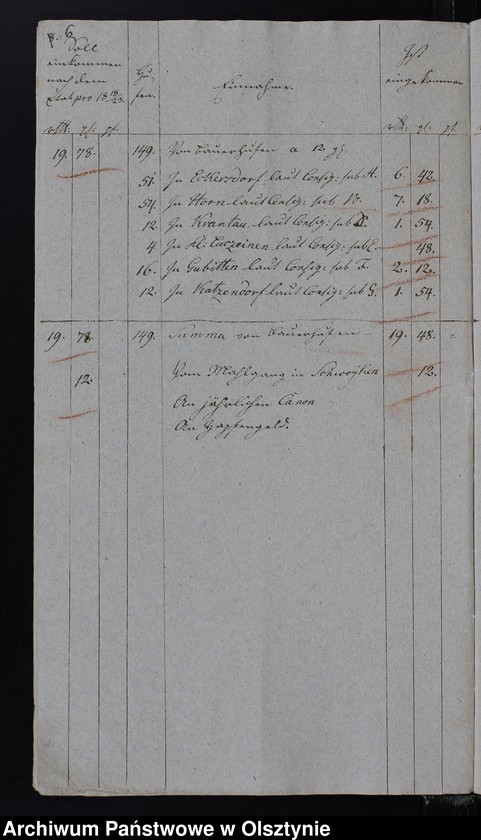 p. 6
Soll
einkommen
nach dem
Etat pro 18 18/23.
Hu-
fen.
Einnahme.
Ist
eingekommen
rtl. gl. pf.
rtl. gl. pf.
19. 78. 149. Von Bauerhufen a 12 gl.
51. In Eckersdorf laut Consig: sub A. 6. 42.
54. In Horn laut Consig: sub B. 7. 18.
12. In Krantau laut Consig: sub 1. 54.
4. In Kl: laut Consig: sub 48.
16. In Gubitten laut Consig: sub F. 2. 12.
12. In Katzendorf laut Consig: sub G. 1. 54.
19. 78. 149. Summa von Bauerhufen 19. 48.
12. Vom Mahlgang in Schwoyken 12.
An jährlichen Canon
An Zapfengeld.
Archiwum Państwowe w Olsztynie